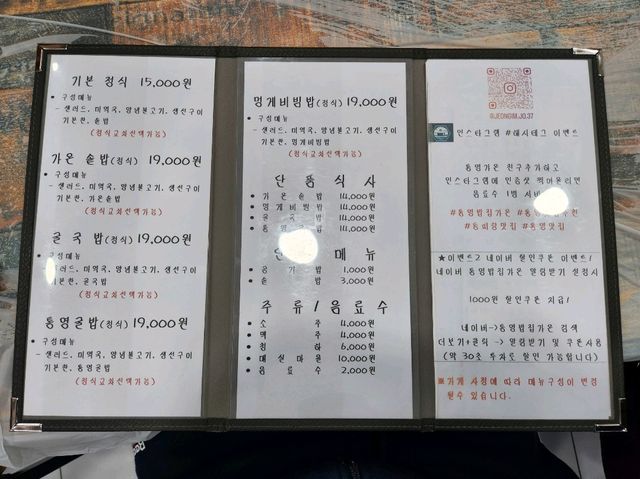 기본 정식 15,000원
• 구성메뉴
- 샐러드, 미역국, 양념불고기, 생선구이
기본찬, 솥밥
(정식교차선택가능)
가온 솥밥(정식) 19,000원
• 구성메뉴
- 샐러드, 미역국, 양념불고기, 생선구이
기본찬, 가온솥밥
(정식교차선택가능)
굴국밥(정식) 19,000원
• 구성메뉴
샐러드, 미역국, 양념불고기, 생선구이
기본찬, 굴국밥
(정식교차선택가능)
통영굴밥(정식) 19,000원
• 구성메뉴
- 샐러드, 미역국, 양념불고기, 생선구이
기본찬, 통영굴밥
(정식교차선택가능)
멍게비빔밥(정식) 19,000원
• 구성메뉴
- 샐러드, 미역국, 양념불고기, 생선구이
기본찬, 멍게비빔밥
(정식교차선택가능)
단품식사
• 가온솥밥 14,000원
• 멍게비빔밥 14,000원
• 굴국밥 14,000원
14,000원
메뉴
• 공기밥 1,000원
• 솥밥 3,000원
주류/음료수
• 소주 4,000원
• 맥주 4,000원
• 청하 6,000원
• 매실마을 10,000원
• 음료수 2,000원
@JEONGIM.JO.37
인스타그램 #해시태그 이벤트
통영가온 친구추가하고
인스타그램에 인증샷 찍어올리면
음료수 1병 서비
#통영밥집가온 #통영
#동피랑맛집 #통영맛집
★이벤트2 네이버 할인쿠폰 이벤트!
네이버 통영밥집가온 알림받기 설정시
1000원 할인쿠폰 지급!
네이버->통영밥집가온 검색
더보기+클릭 -> 알림받기 및 쿠폰사용
(약 30초 투자로 할인 가능합니다)
※가게 사정에 따라 메뉴구성이 변경
될수 있습니다.